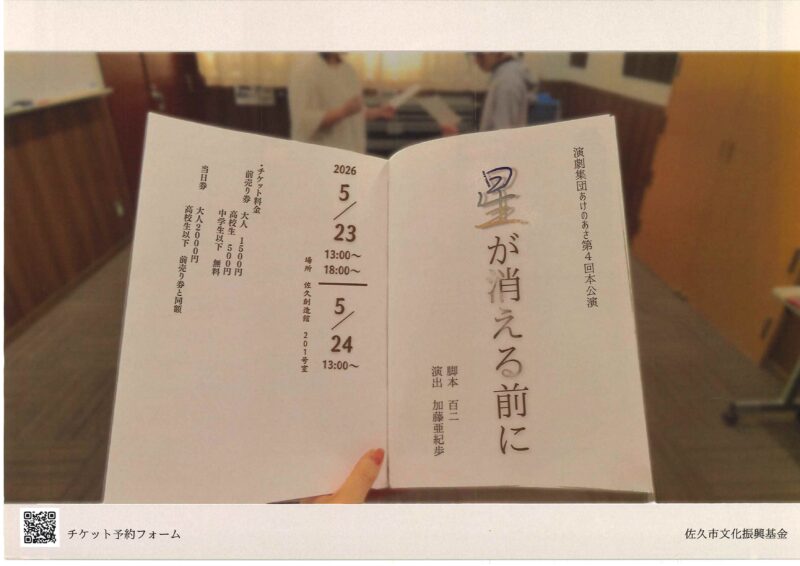 演劇集団あけのあさ第4回本公演
星が消える前に
脚本　百二
演出　加藤亜紀歩
2026
5/23
13:00~
18:00~
5/24
13:00~
場所　佐久創造館　201号室
・チケット料金
前売り券　大人　1500円
高校生　500円
中学生以下　無料
当日券　大人2000円
高校生以下　前売り券と同額
チケット予約フォーム
佐久市文化振興基金